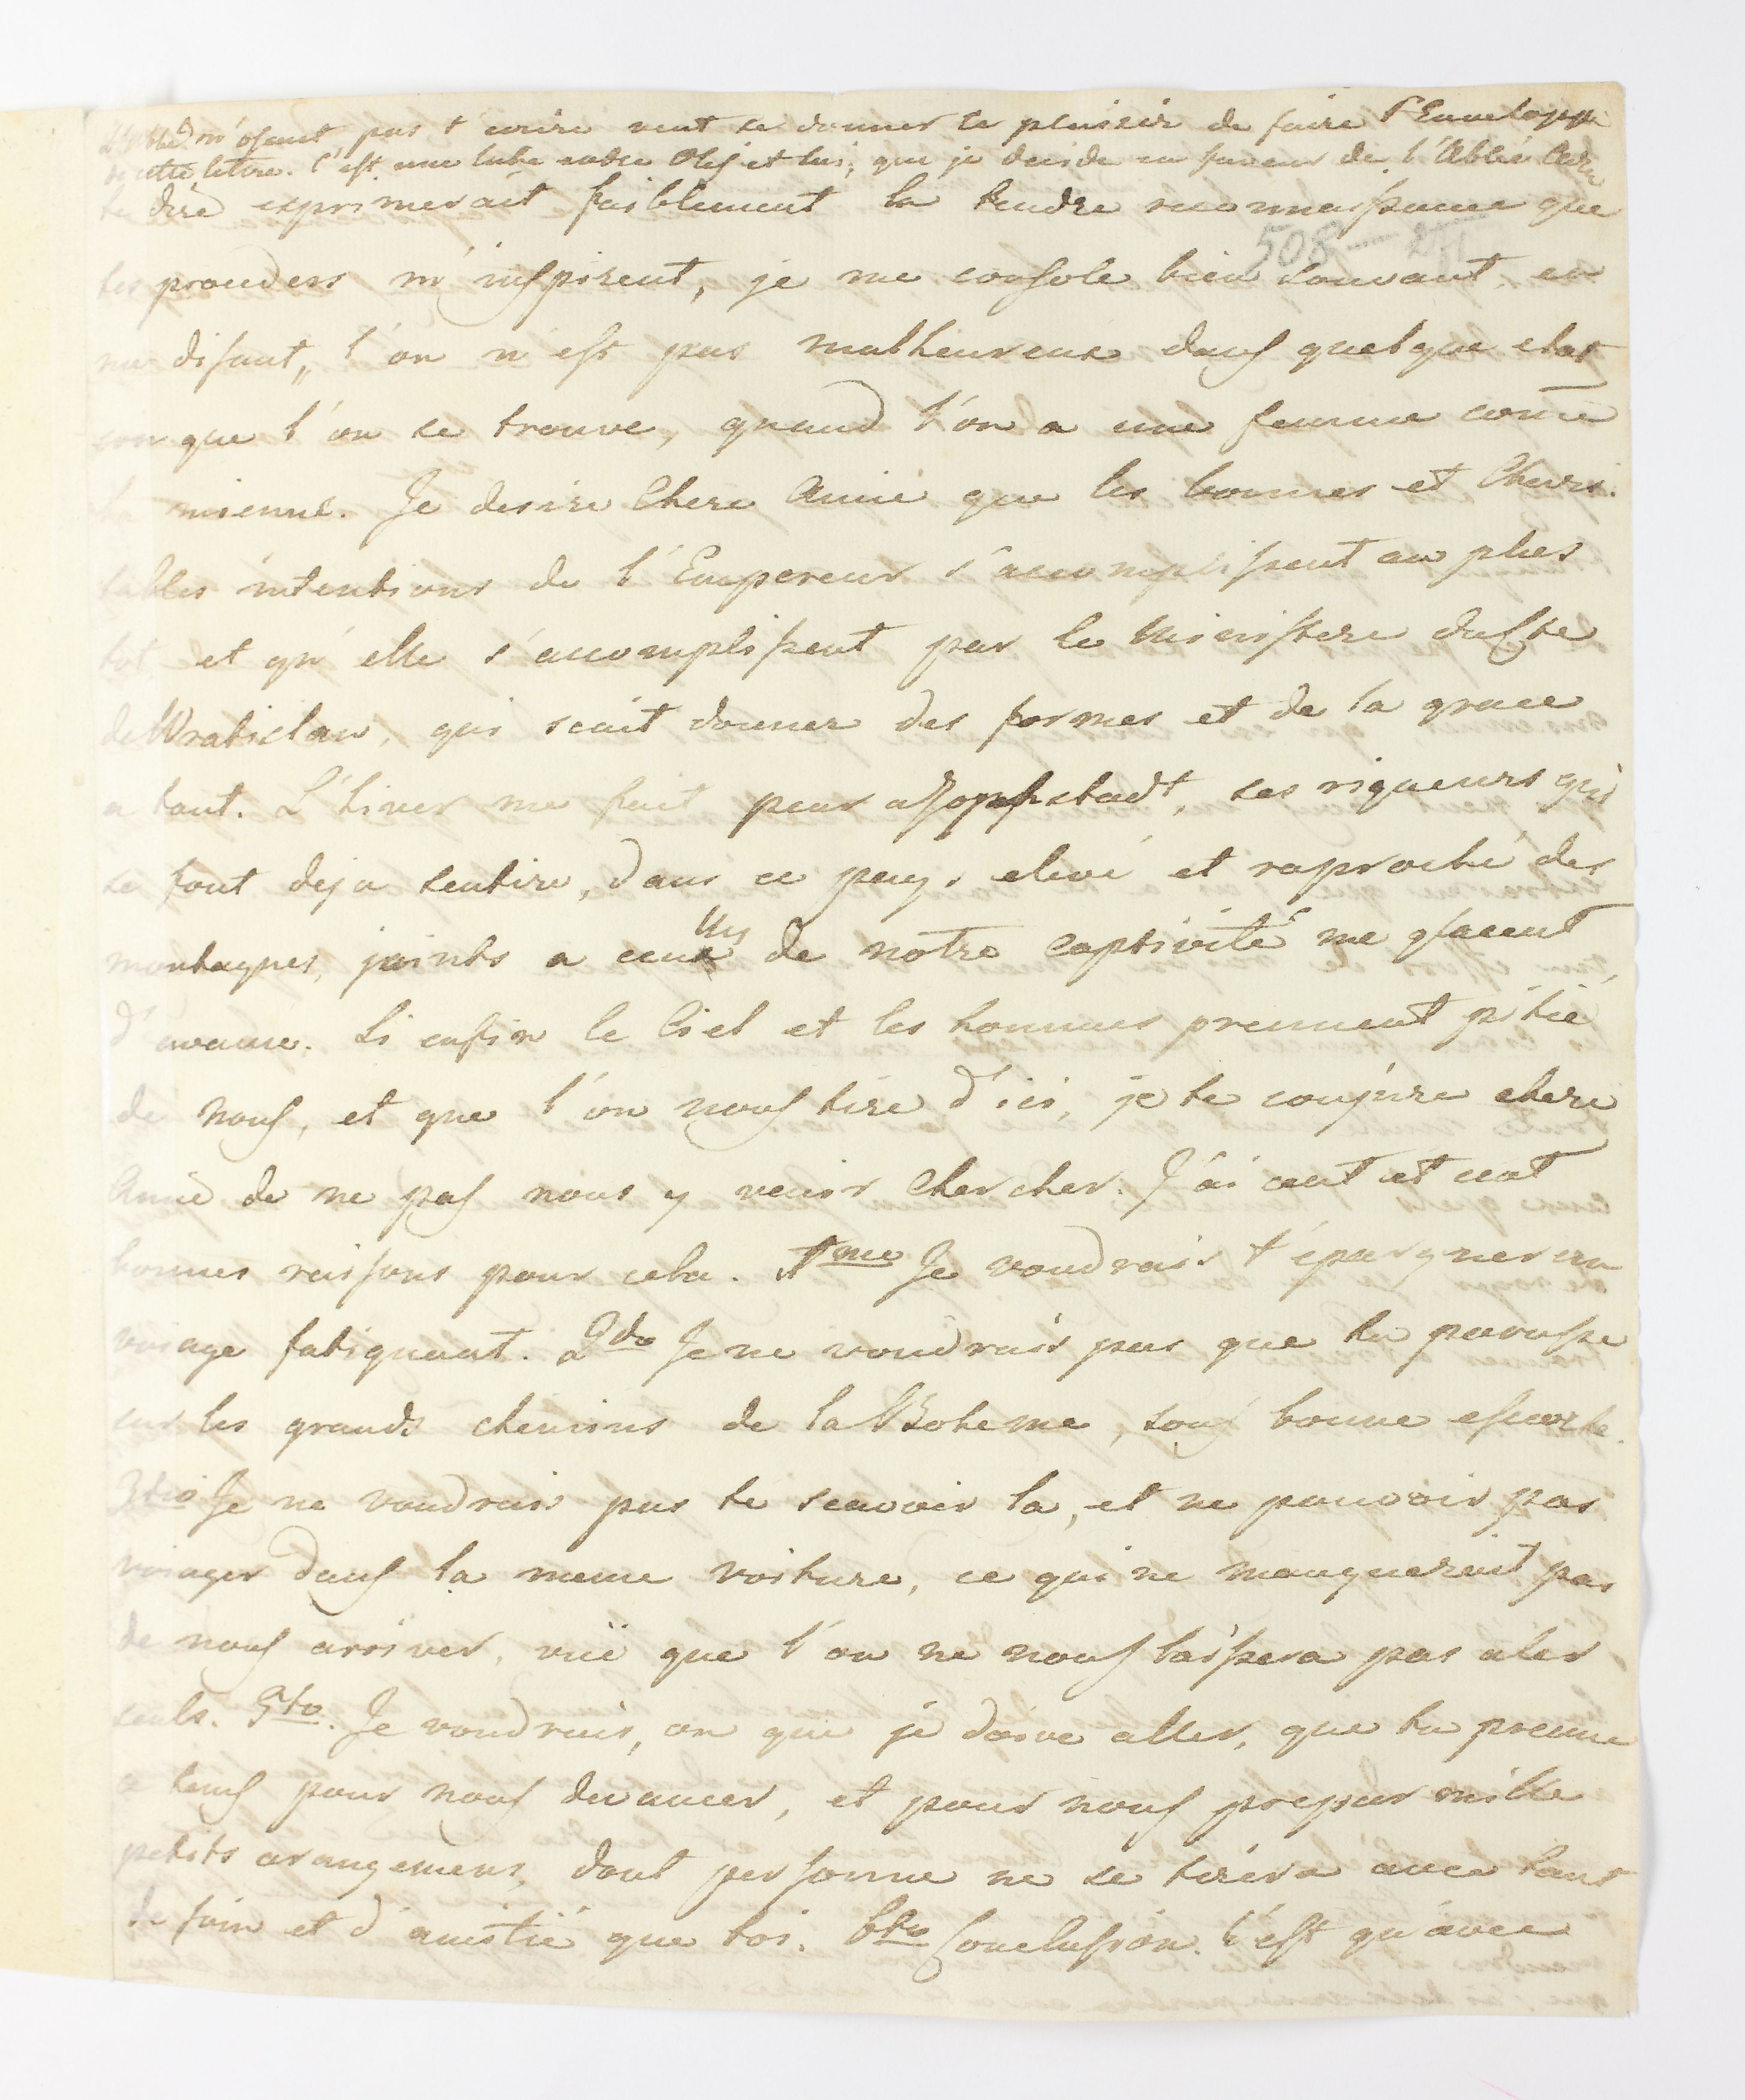 L'Abbé n'osant pas t'ecrire veut se donner le plaisir de faire l'Enveloppe
de cette lettre. C'est une lute entre Olis et lui, que je decide en faveur de l'Abbé
te dire exprimerait faiblement la tendre reconnaissance que
tes procuders m'inspirent, je me console bien souvant, en
me disant„ l'on n'est pas malheureux dans quelque etat
con que l'on se trouve, quand l'on a une femme come
la mienne. Je desire Chere Amie que les bonnes et Chari-
tables intentions de l'Empereur s'accomplissent au plus
tot et qu'elle s'accomplissent par le Ministere du Cte
de Wratislaw, qui scait donner des formes et de la grace
a tout. L'hiver me fait peur a Josephstadt, ses rigueurs qui
se font deja sentire, dans ce pays elevé et raproché des
montagnes, joints a celles de notre captivité me glacent
d'avance. Si enfin le Ciel et les hommes prennent pitié
de nous, et que l'on nous tire d'ici, je te conjure chere
Amie de ne pas nous y venir chercher. J'ai cent et cent
bonnes raisons pour cela. 1mo Je voudrais t'épargner un
voiage fatiguant. 2do Je ne voudrais pas que tu parusse
sur les grands chemins de la Boheme, sous bonne escorte.
3tio Je ne voudrais pas te scavoir la, et ne pouvoir pas
voiager dans la meme voiture, ce qui ne manquerait pas
de nous arriver, vuë que l'on ne nous laissera pas aler
seuls. 5to. Je voudrais, ou que je doive aller, que tu prenne
a tems pour nous devancer, et pour nous prepar mille
petits arangemens, dont personne ne se tirera avec tant
de soin et d'amitié que toi. 6to Conclusion. C'est qu'avec
508